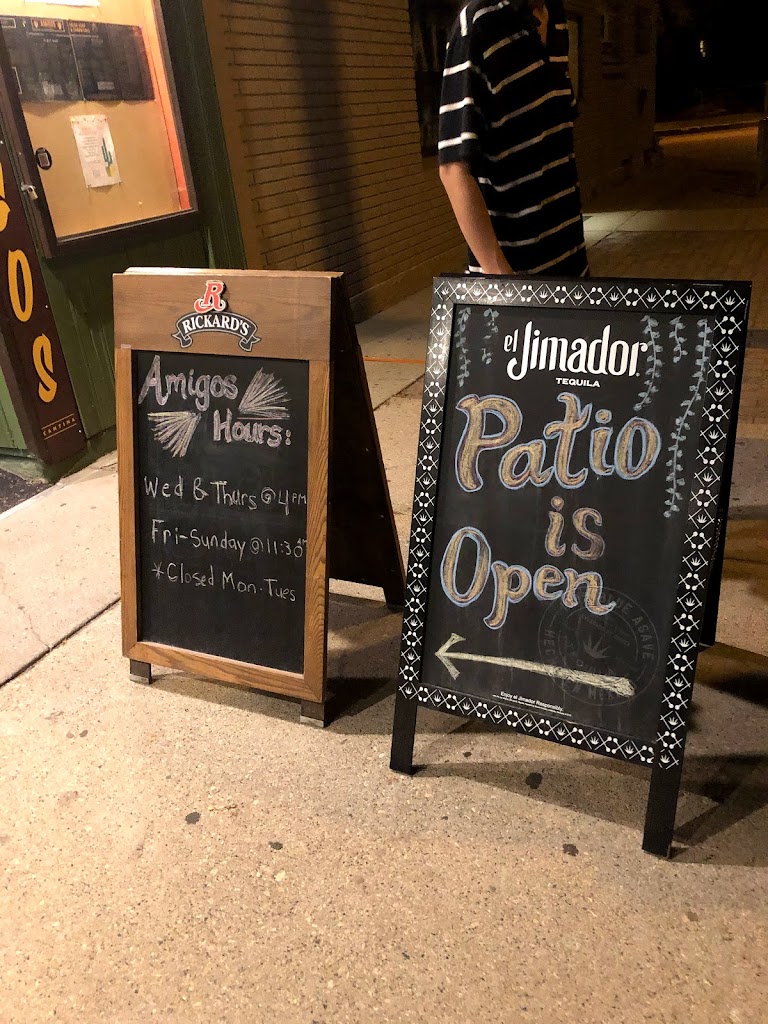 OS
CANTINA
R
RICKARD'S
Amigos
Hours:
Wed & Thurs @ 4pm
Fri-Sunday @ 11:30
*Closed Mon-Tues
el Jimador
TEQUILA
Patio
is
Open
AGAVE
Enjoy el Jimador Responsibly.